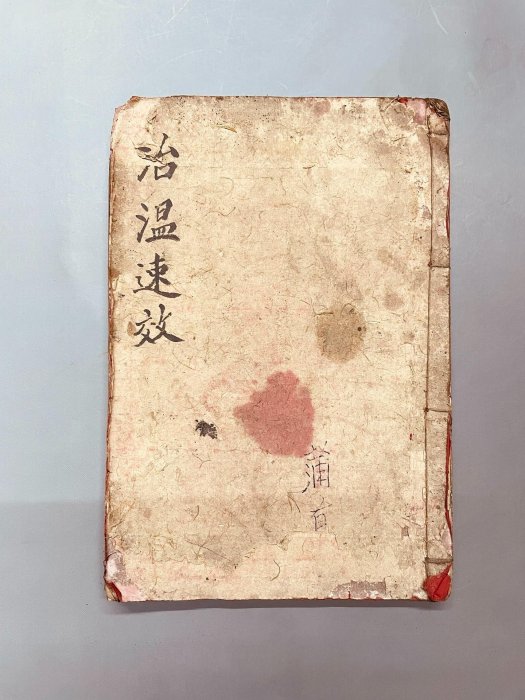 治温速效
蒲台